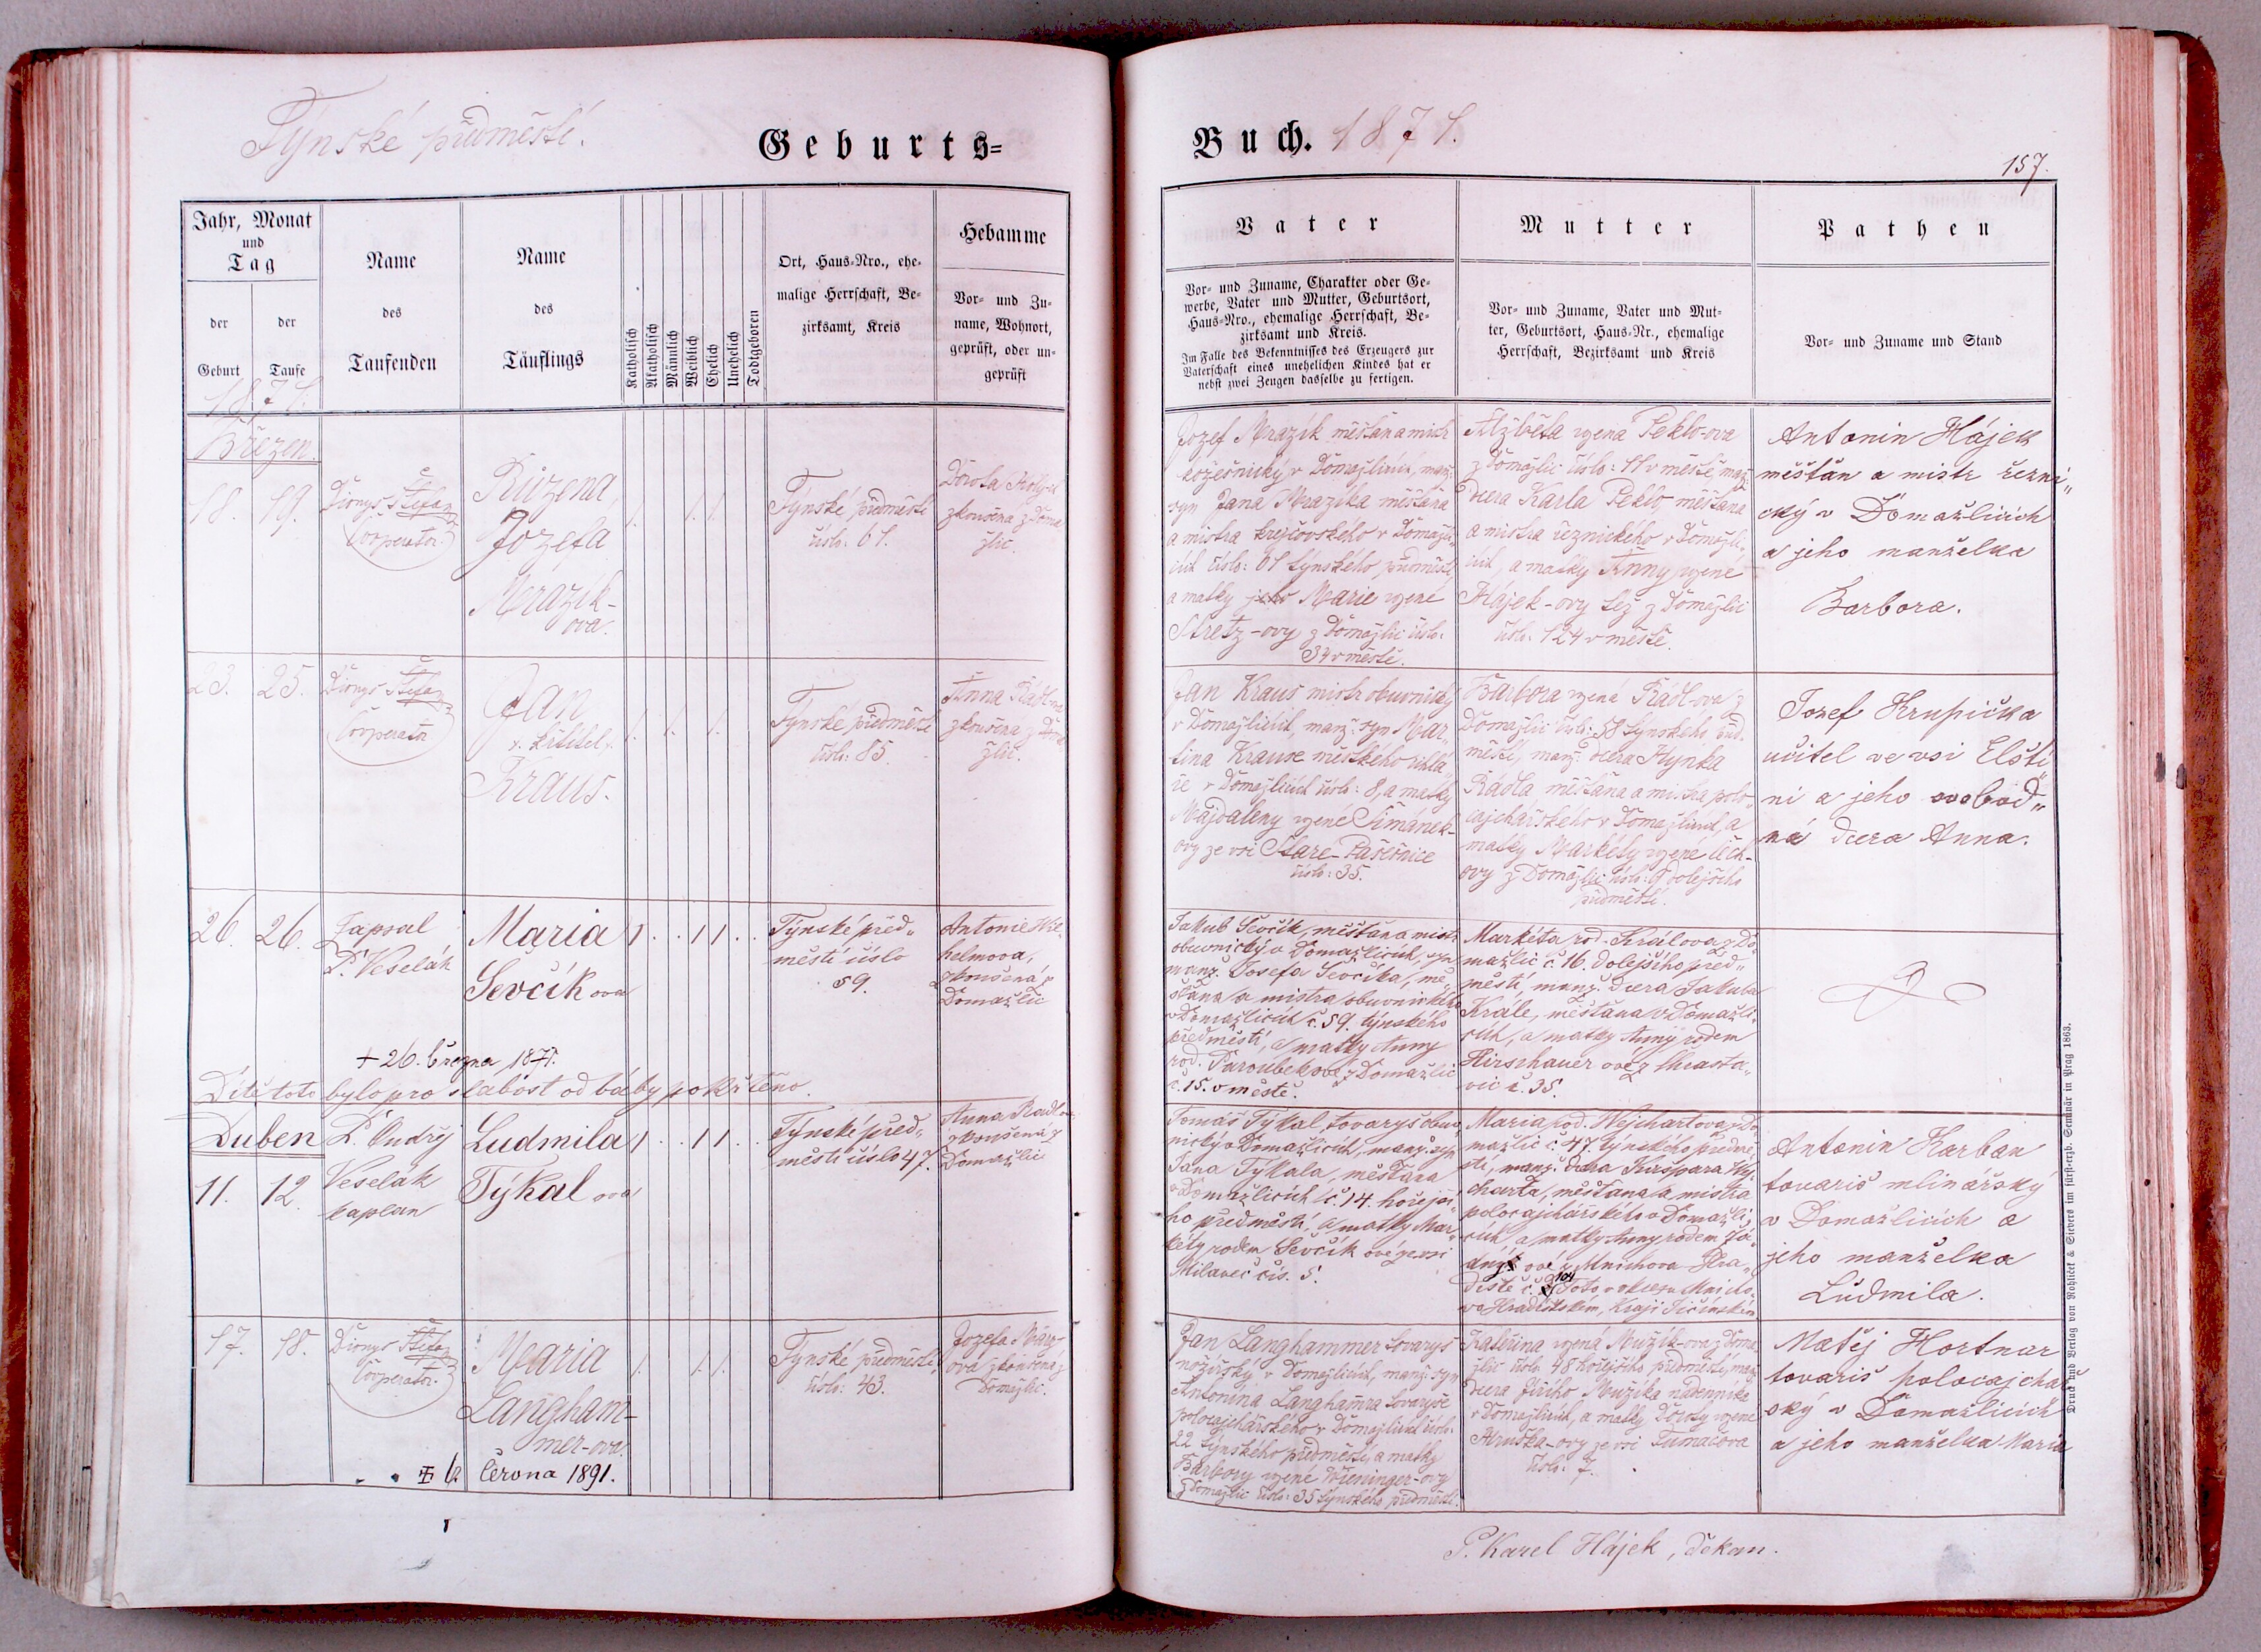 Týnské předměstí.
Geburts=
Buch. 1871.
157.
Jahr, Monat
und
Tag
der
Geburt
der
Taufe
Name
des
Taufenden
Name
des
Täuflings
Katholisch
Akatholisch
Männlich
Weiblich
Ehelich
Unehelich
Todtgeboren
Ort, Haus-Nro., ehe-
malige Herrschaft, Be-
zirksamt, Kreis
Hebamme
Vor- und Zu-
name, Wohnort,
geprüft, oder un-
geprüft
Vater
Vor- und Zuname, Charakter oder Ge-
werbe, Vater und Mutter, Geburtsort,
Haus-Nro., ehemalige Herrschaft, Be-
zirksamt und Kreis.
Im Falle des Bekenntnisses des Erzeugers zur
Vaterschaft eines unehelichen Kindes hat er
nebst zwei Zeugen dasselbe zu fertigen.
Mutter
Vor- und Zuname, Vater und Mut-
ter, Geburtsort, Haus-Nr., ehemalige
Herrschaft, Bezirksamt und Kreis
Pathen
Vor- und Zuname und Stand
1871.
Březen.
18. 19.
Dionys Štefan
Cooperator.
Růžena
Jozefa
Mrazík-
ova.
1. 1. 1.
Týnské předměstí
číslo: 61.
Dorota
zkoušená z Doma-
žlic.
Jozef Mrazík měšťan a mistr
kožešnický v Domažlicích, manž.
syn Jana Mrazíka měšťana
a mistra krejčovského v Domažli-
cích číslo: 61 týnského předměstí,
a matky jeho Marie rozené
Stretz-ovy z Domažlic číslo:
34 v městě.
Alžběta rozená Peklo-ova
z Domažlic číslo: 11 v městě, manž.
dcera Karla Peklo, měšťana
a mistra řeznického v Domažli-
cích, a matky Anny rozené
Hájek-ovy též z Domažlic
číslo: 124 v městě.
Antonin Hájek
měšťan a mistr řezni„
cký v Domažlicích
a jeho manželka
Barbora.
23. 25.
Dionys Štefan
Cooperator
Jan
křtitel
Kraus.
1. 1. 1.
Týnské předměstí
číslo: 85.
Anna Rádlova
zkoušená z Doma-
žlic.
Jan Kraus mistr obuvnický
v Domažlicích, manž: syn Mar-
tina Krause městského cihlá-
ře v Domažlicích číslo: 8, a matky
Magdaleny rozené Šimánek-
ovy ze vsi Staré-Pasečnice
číslo: 35.
Barbora rozená Rádl-ova z
Domažlic číslo: 58 týnského před-
městí, manž: dcera Hynka
Rádla měšťana a mistra polo-
cajchářského v Domažlicích, a
matky Markéty rozené Čech-
ovy z Domažlic číslo: 9 dolejšího
předměstí.
Jozef Krupička
učitel ve vsi Elšti„
ni a jeho svobod„
ná dcera Anna.
26. 26.
Zapsal
P. Veselák
Maria
Ševčíkova
1 . . 1 1 . .
Týnské před„
městí číslo
59.
Antonie Wil-
helmova,
zkoušená z
Domažlic
Jakub Ševčík, měšťan a mistr
obuvnický v Domažlicích, syn
manž. Josefa Ševčíka, mě-
šťana a mistra obuvnického
v Domažlicích č. 59. týnského
předměstí, a matky Anny
rod. Paroubekové z Domažlic
č. 15. v městě.
Markéta rod. Králova z Do-
mažlic č. 16. dolejšího před„
městí, manž. dcera Jakuba
Krále, měšťana v Domažli-
cích, a matky Anny rodem
Hirschauerové z Chrasta-
vic č. 35.
+ 26. března 1871.
Dítě toto bylo pro slabost od báby pokřtěno.
Duben
11. 12.
P. Ondřej
Veselák
kaplan
Ludmila
Týkalova
1 . . 1 1 . .
Týnské před„
městí číslo 47.
Anna Radlova
zkoušená z
Domažlic
Tomáš Týkal, tovaryš obuv-
nický v Domažlicích, manž. syn
Jana Týkala, měšťana
v Domažlicích č. 14. hořejší-
ho předměstí, a matky Mar-
kéty rodem Ševčíkové ze vsi
Milaveč čís. 5.
Maria rod. Wejchartova z Do-
mažlic č. 47. týnského předmě-
stí, manž. dcera Kašpara Wej-
charta, měšťana a mistra
polocajchářského v Domažli-
cích, a matky Anny rodem
ové z Mnichova Hra-
diště č. 101
va Hradištském, kraji Jičínském.
Antonin Karban
tovariš mlinářský
v Domažlicích a
jeho manželka
Ludmila.
17. 18.
Dionys Štefan
Cooperator.
Maria
Langham-
mer-ova.
1. 1. 1.
Týnské předměstí,
číslo: 43.
Jozefa
ova zkoušená z
Domažlic.
Jan Langhammer tovaryš
nožířský v Domažlicích, manž: syn
Antonína Langhamra tovaryše
polocajchářského v Domažlicích číslo:
22 týnského předměstí, a matky
Barbory rozené Wieninger-ovy
z Domažlic číslo: 35 týnského předměstí.
Kateřina rozená Mužík-ova z Doma-
žlic číslo: 48 hořejšího předměstí, manž.
dcera Jiřího Mužíka nádenníka
v Domažlicích, a matky Doroty rozené
Hruška-ovy ze vsi Tumačova
číslo: 7.
Matěj Hortnar
tovariš polocajchař
ský v Domažlicích
a jeho manželka Maria
června 1891.
P. Karel Hájek, děkan.
Druck und Verlag von Rohliček & Sievers im fürst-erzb. Seminär in Prag 1863.